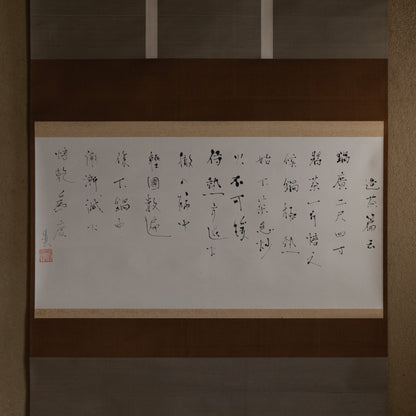 造茶篇云
鍋廣二尺四寸
將茶一斤焙之
候鍋極熱
始下茶急炒
火不可緩
待熟方退火
徹入篩中
輕團數遍
復下鍋中
漸漸減火
焙乾為度